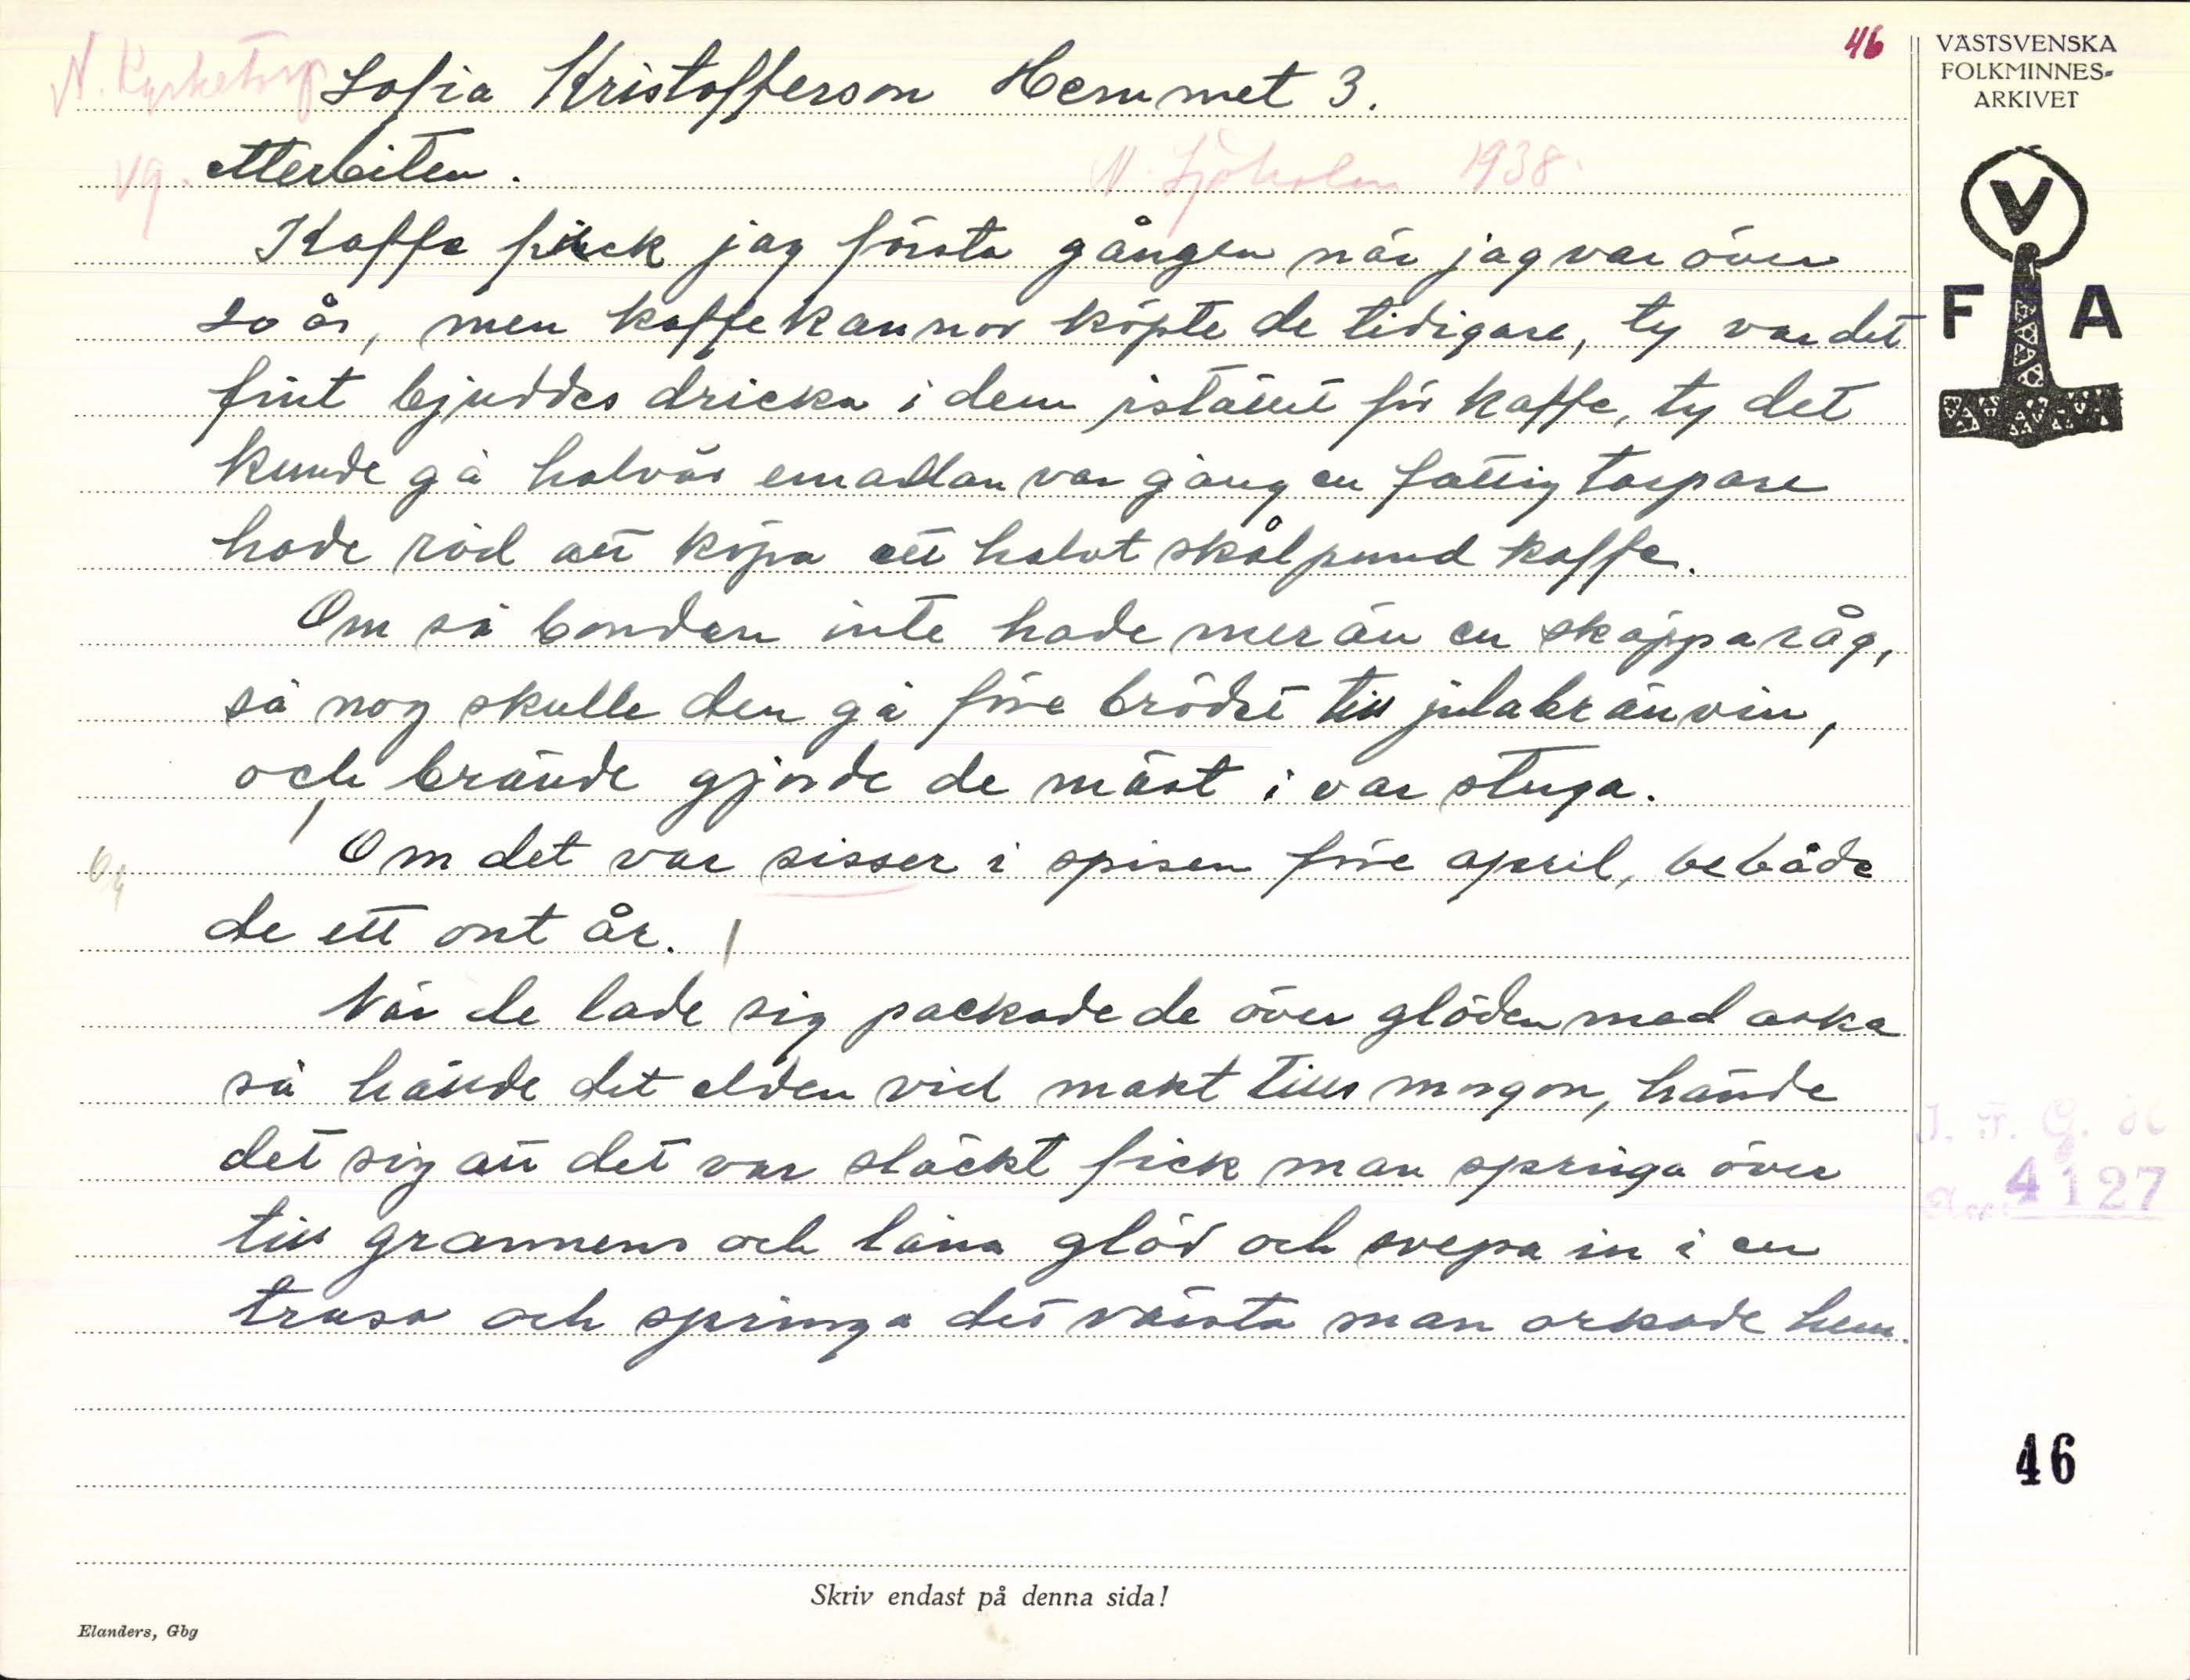 46
VÄSTSVENSKA
FOLKMINNES-
ARKIVET
N. Kyrketorp Sofia Kristofferson Hemmet 3.
Vg. etterbiten.
N. Sjöholm 1938.
Kaffe fick jag första gången när jag var över
20 år, men kaffekannor köpte de tidigare, ty var det
fint bjuddes dricka i dem istället för kaffe, ty det
kunde gå halvår emallan var gång en fattig torpare
hade råd att köpa ett halvt skålpund kaffe.
Om så bonden inte hade mer än en skäppa råg,
så nog skulle den gå före brödet till julabränvin,
och brände gjorde de mäst i var stuga.
Om det var sisser i spisen före april, bebåde
de ett ont år.
När de lade sig packade de över glöden med aska
så hände det elden vid makt till morgon, hände
det sig att det var släckt fick man springa över
till grannens och låna glöd och svepa in i en
trasa och springa det värsta man orkade hem.
V
F A
I. F. G. H
Acc. 4127
46
Skriv endast på denna sida!
Elanders, Gbg